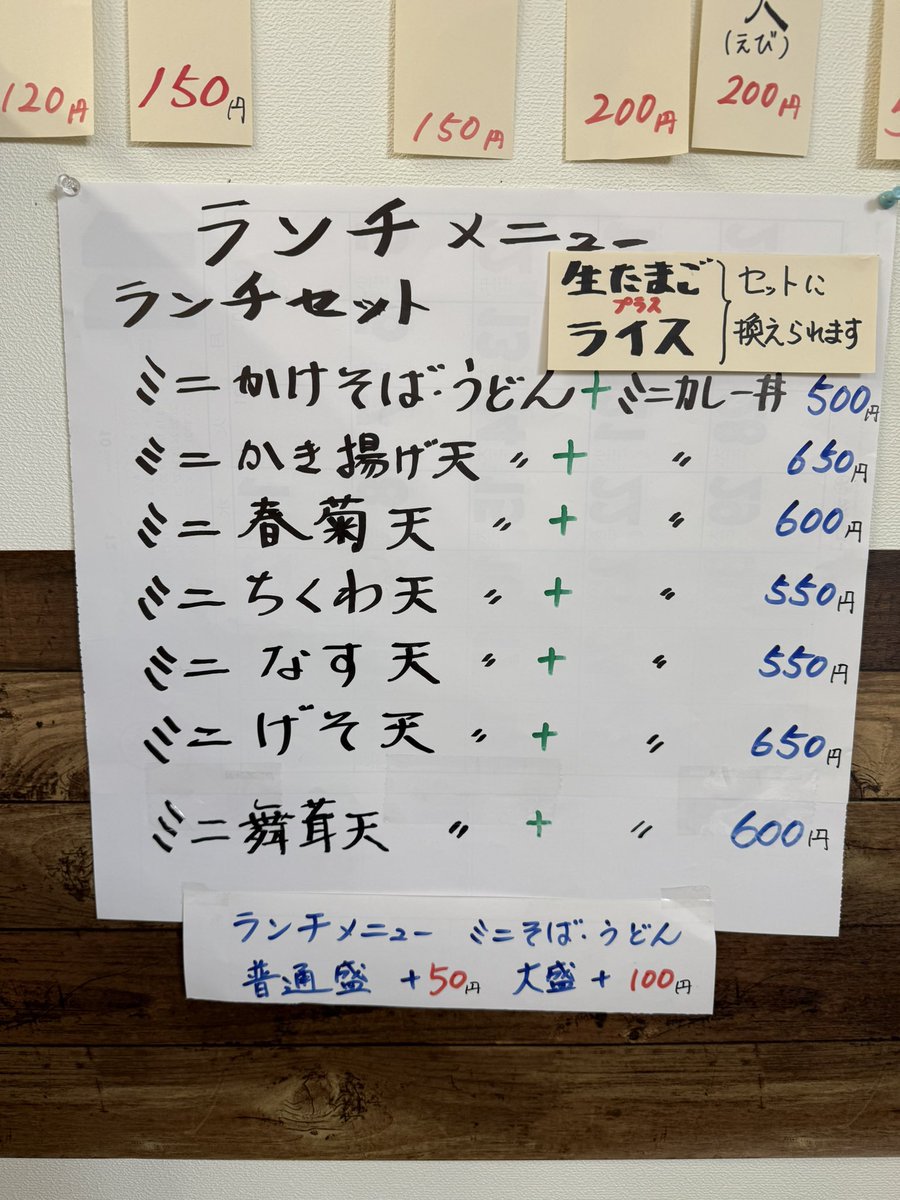 120円
150円
150円
200円
(えび)
200円
ランチメニュー
ランチセット
生たまご
プラス
ライス
セットに
換えられます
ミニかけそば・うどん+ミニカレー丼 500円
ミニかき揚げ天 〃 + 〃 650円
ミニ春菊天 〃 + 〃 600円
ミニちくわ天 〃 + 〃 550円
ミニなす天 〃 + 〃 550円
ミニげそ天 〃 + 〃 650円
ミニ舞茸天 〃 + 〃 600円
ランチメニュー ミニそば・うどん
普通盛 +50円 大盛+100円